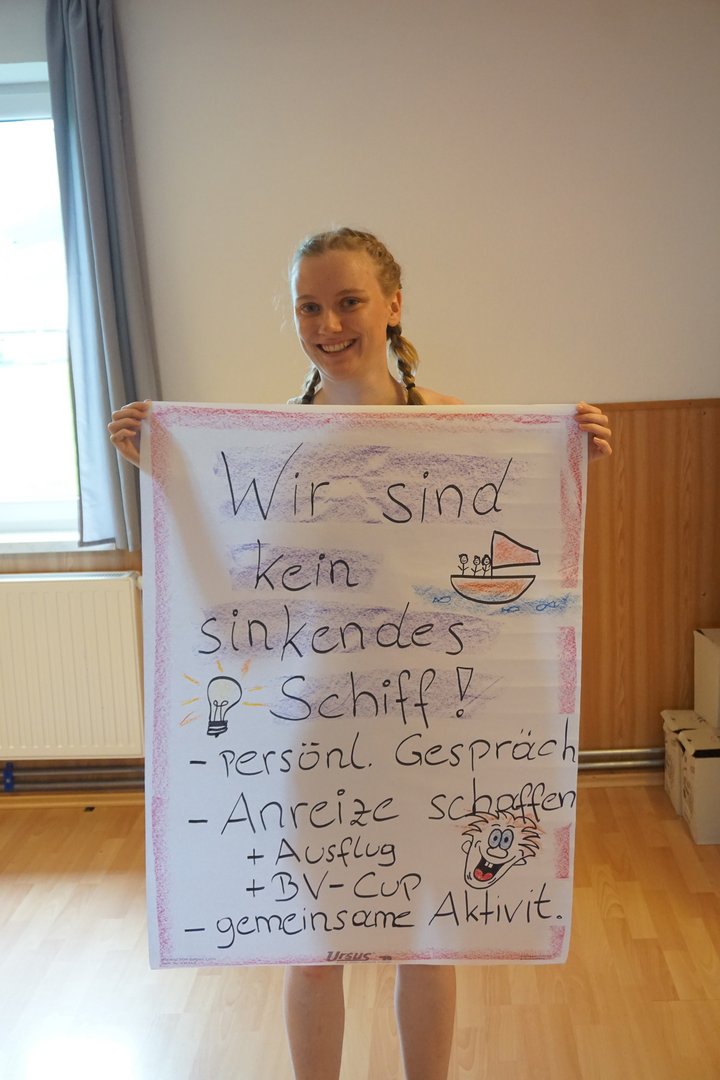 Wir sind
kein
sinkendes
Schiff!
- persönl. Gespräch
- Anreize schaffen
+ Ausflug
+ BV-Cup
- gemeinsame Aktivit.
Ursus